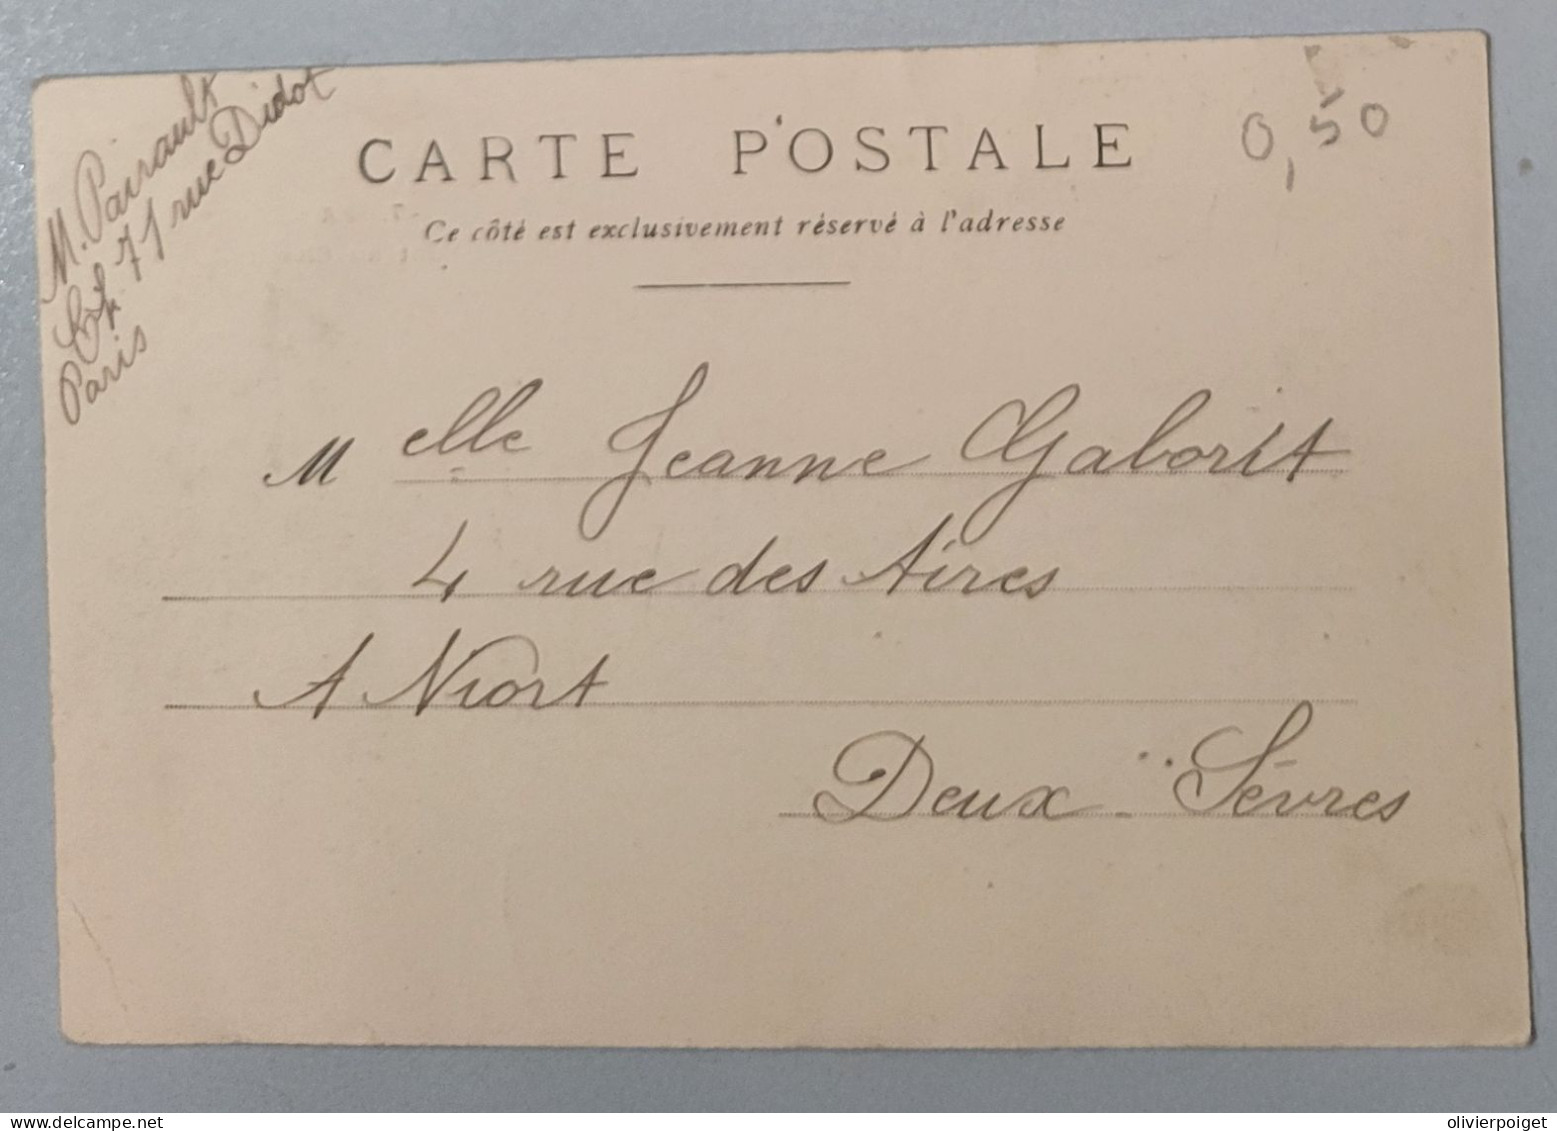 M. Pairault
71 rue Didot
Paris
CARTE POSTALE
0,50
Ce côté est exclusivement réservé à l'adresse
Melle Jeanne Gaborit
4 rue des Aires
A Niort
Deux-Sèvres
www.delcampe.net
olivierpoiget